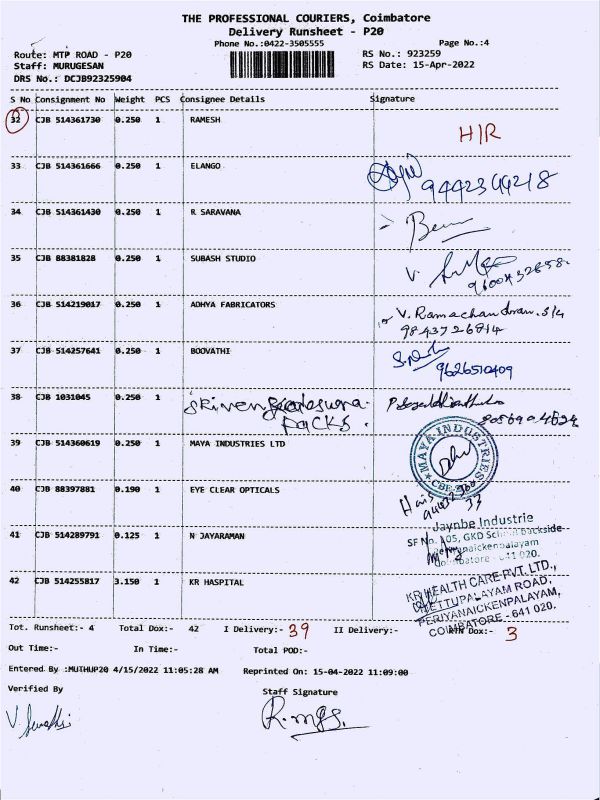 THE PROFESSIONAL COURIERS, Coimbatore
Delivery Runsheet - P20
Phone No.:0422-3505555 Page No.:4
Route: MTP ROAD - P20 RS No.: 923259
Staff: MURUGESAN RS Date: 15-Apr-2022
DRS No.: DCJB92325904
S No Consignment No Weight PCS Consignee Details Signature
32 CJB 514361730 0.250 1 RAMESH H/R
33 CJB 514361666 0.250 1 ELANGO
34 CJB 514361430 0.250 1 R SARAVANA
35 CJB 88381828 0.250 1 SUBASH STUDIO
36 CJB 514219017 0.250 1 ADHYA FABRICATORS V. Ramachandran
37 CJB 514257641 0.250 1 BOOVATHI 9626510409
38 CJB 1031045 0.250 1
PACKS.
39 CJB 514360619 0.250 1 MAYA INDUSTRIES LTD MAYA INDUSTRIES
40 CJB 88397881 0.190 1 EYE CLEAR OPTICALS
41 CJB 514289791 0.125 1 N JAYARAMAN Jaynbe Industrie
SF No. 105, GKD School Backside
Coimbatore - 641 020.
42 CJB 514255817 3.150 1 KR HASPITAL KR HEALTH CARE PVT. LTD.,
METTUPALAYAM ROAD,
PERIYANAICKENPALAYAM,
COIMBATORE - 641 020.
Tot. Runsheet:- 4 Total Dox:- 42 I Delivery:- 39 II Delivery:- RTN Dox:- 3
Out Time:- In Time:- Total POD:-
Entered By :MUTHUP20 4/15/2022 11:05:28 AM Reprinted On: 15-04-2022 11:09:00
Verified By Staff Signature